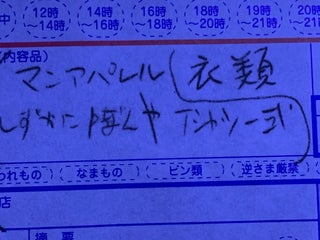 12時 14時 16時 18時 19時 20時
〜14時 〜16時 〜18時 〜20時 〜21時 〜21時
内容品)
マンアパレル (衣類
しずかにぽんや Tシャツ一式)
われもの なまもの ビン類 逆さま厳禁
店
摘 要